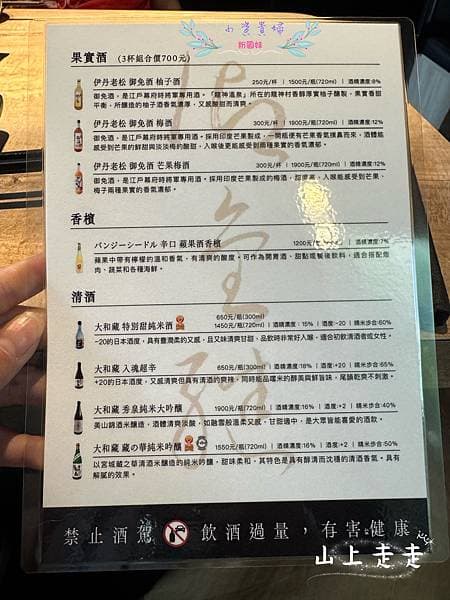 小資貴婦
新圓妹
果實酒 (3杯組合價700元)
伊丹老松 御免酒 柚子酒 250元/杯 | 1500元/瓶(720ml) | 酒精濃度:8%
御免酒，是江戶幕府時將軍專用酒。「龍神溫泉」所在的龍神村香醇厚實柚子釀製，果實香甜
平衡，所釀造的柚子酒香氣濃厚，又感酸甜而清爽。
伊丹老松 御免酒 梅酒 300元/杯 | 1900元/瓶(720ml) | 酒精濃度:12%
御免酒，是江戶幕府時將軍專用酒。採用印度芒果製成，一開瓶便有芒果香氣撲鼻而來，酒體能
感受到芒果的鮮甜與淡淡梅的酸甜，入喉後更能感受到兩種果實的香氣濃郁。
伊丹老松 御免酒 芒果梅酒 300元/杯 | 1900元/瓶(720ml) | 酒精濃度:12%
御免酒，是江戶幕府時將軍專用酒。採用印度芒果製成的梅酒，甜度高，入喉能感受到芒果、
梅子兩種果實的香氣濃郁。
香檳
バンジーシードル 辛口 蘋果酒香檳 1200元/ 酒精濃度:7%
蘋果中帶有檸檬的溫和香氣，有清爽的酸度。可作為開胃酒、甜點或餐後飲料，適合搭配燉
肉、蔬菜和各種海鮮。
清酒
650元/瓶(300ml)
大和藏 特別甜純米酒 1450元/瓶(720ml) | 酒精濃度：15% | 酒度:-20 | 精米步合:60%
-20的日本酒度，具有豐潤柔的又感，且又味清爽甘甜。品飲時非常好入喉，適合初飲清酒者或女性。
大和藏 入魂超辛 650元/瓶(300ml) | 酒精濃度:18% | 酒度:+20 | 精米步合:65%
+20的日本酒度，又感清爽但具有清酒的爽辣，同時能品嚐米的醇美與鮮旨味，尾韻乾爽不刺激。
大和藏 秀泉純米大吟釀 1900元/瓶(720ml) | 酒精濃度:16% | 酒度:+2 | 精米步合:40%
美山錦酒米釀造，酒體清爽淡酸，如融雪般溫柔又感，甘甜適中，是大眾皆能喜愛的酒款。
大和藏 藏の華純米吟釀 1550元/瓶(720ml) | 酒精濃度:16% | 酒度:+2 | 精米步合:50%
以宮城藏之華清酒米釀造的純米吟釀，甜味柔和，其特色是具有醇清而沈穩的清酒香氣。具有
解膩的效果。
禁止酒駕 飲酒過量，有害健康
山上走走